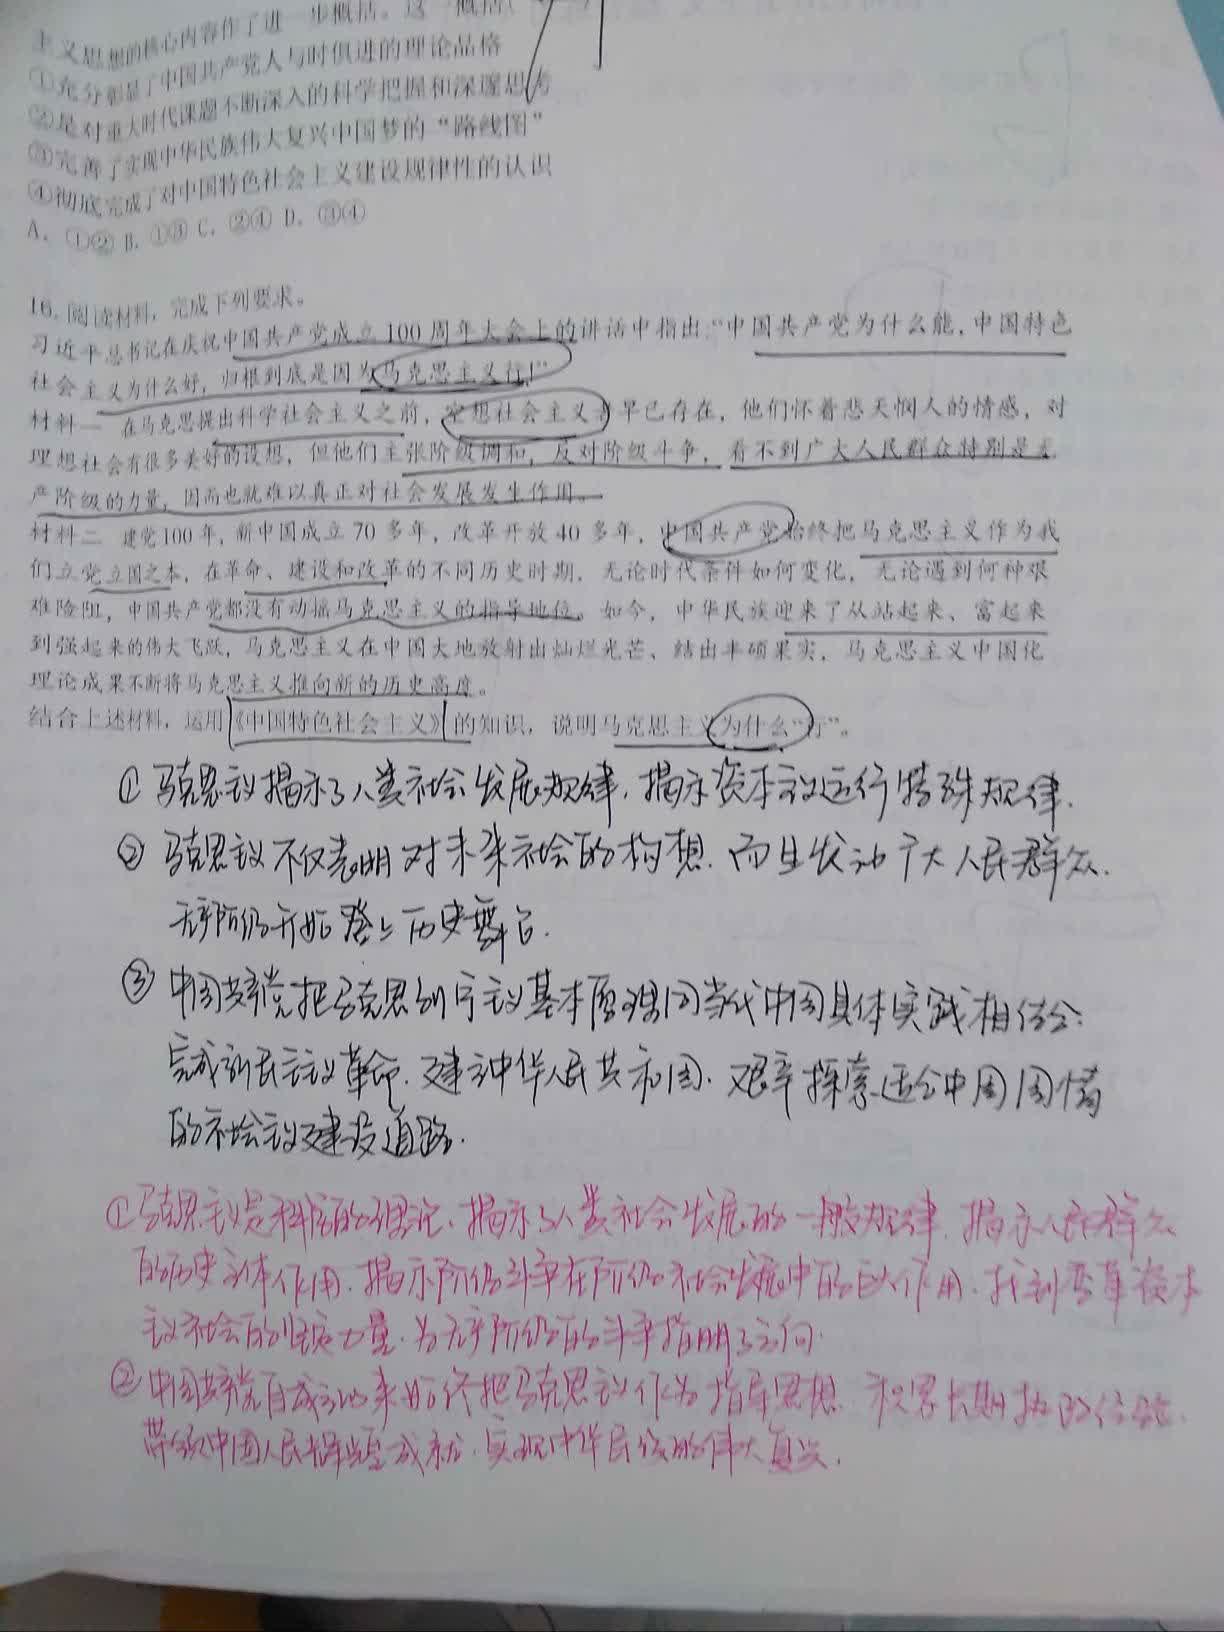 主义思想的核心内容作了进一步概括。这一概括
①充分彰显了中国共产党人与时俱进的理论品格
②是对重大时代课题不断深入的科学把握和深邃思考
③完善了实现中华民族伟大复兴中国梦的“路线图”
④彻底完成了对中国特色社会主义建设规律性的认识
A. ①② B. ①③ C. ②④ D. ③④
16. 阅读材料，完成下列要求。
习近平总书记在庆祝中国共产党成立 100 周年大会上的讲话中指出：“中国共产党为什么能，中国特色
社会主义为什么好，归根到底是因为马克思主义行！”
材料一 在马克思提出科学社会主义之前，空想社会主义者早已存在，他们怀着悲天悯人的情感，对
理想社会有很多美好的设想，但他们主张阶级调和，反对阶级斗争，看不到广大人民群众特别是无
产阶级的力量，因而也就难以真正对社会发展发生作用。
材料二 建党100年，新中国成立 70 多年，改革开放 40 多年，中国共产党始终把马克思主义作为我
们立党立国之本，在革命、建设和改革的不同历史时期，无论时代条件如何变化，无论遇到何种艰
难险阻，中国共产党都没有动摇马克思主义的指导地位。如今，中华民族迎来了从站起来、富起来
到强起来的伟大飞跃，马克思主义在中国大地放射出灿烂光芒、结出丰硕果实，马克思主义中国化
理论成果不断将马克思主义推向新的历史高度。
结合上述材料，运用《中国特色社会主义》的知识，说明马克思主义为什么“行”。
① 马克思主义揭示了人类社会发展规律，揭示资本主义运行特殊规律.
② 马克思主义不仅表明对未来社会的构想，而且发动广大人民群众.
无产阶级开始登上历史舞台.
③ 中国共产党把马克思列宁主义基本原理同当代中国具体实践相结合.
完成新民主主义革命. 建立中华人民共和国. 艰辛探索适合中国国情
的社会主义建设道路.
①马克思主义是科学的理论. 揭示了人类社会发展的一般规律. 揭示人民群众
的历史主体作用. 揭示阶级斗争在阶级社会发展中的巨大作用. 找到变革资本
主义社会的力量. 为无产阶级的斗争指明了方向.
②中国共产党自成立以来始终把马克思主义作为指导思想. 积累长期执政经验.
带领中国人民辉煌成就. 实现中华民族的伟大复兴.